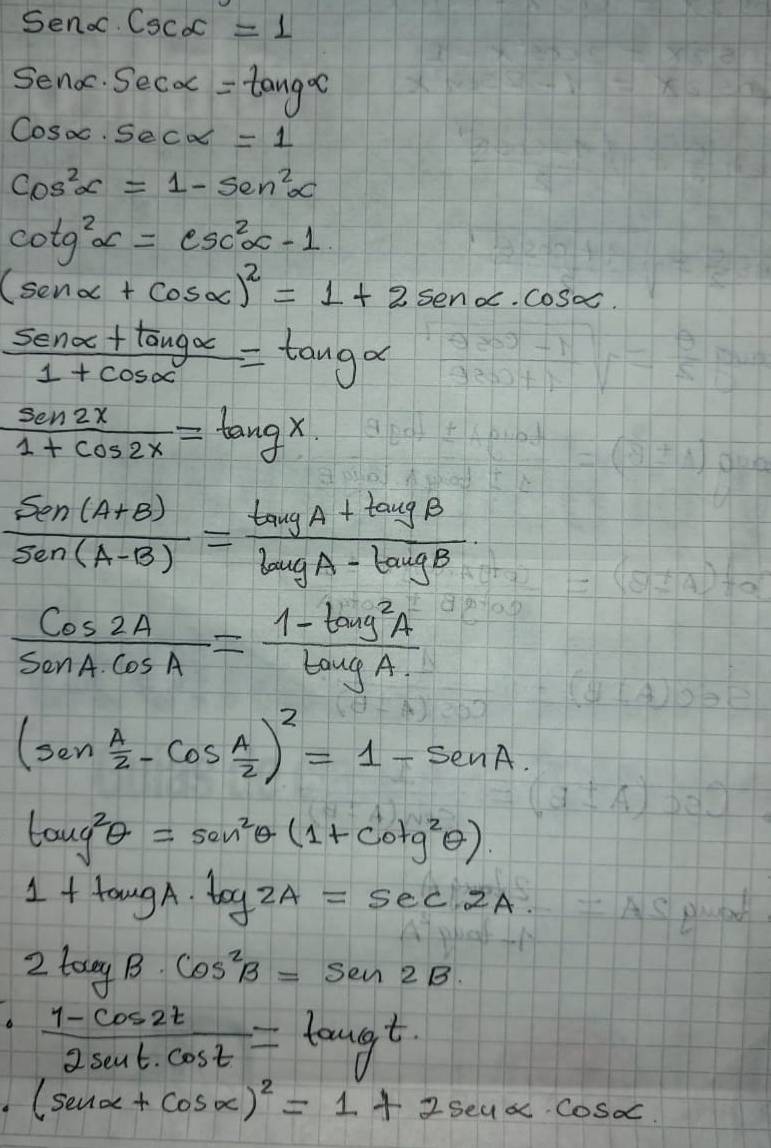 Senα . Cscα = 1
Senα . Secα = tangα
Cosα . Secα = 1
Cos²α = 1 - sen²α
cotg²α = csc²α - 1.
(senα + cosα)² = 1 + 2 senα . cosα.
(senα + tangα)/(1 + cosα) = tangα
(sen 2x)/(1 + cos 2x) = tang x.
(Sen (A+B))/(sen (A-B)) = (tang A + tang B)/(tang A - tang B).
(Cos 2A)/(Sen A. Cos A) = (1 - tang²A)/(tang A.)
(sen A/2 - cos A/2)² = 1 - sen A.
tang²θ = sen²θ (1 + cotg²θ).
1 + tang A . tog 2A = sec 2A.
2 tang B . Cos²B = sen 2B.
. (1 - cos 2t)/(2 sen t. cos t) = tang t.
. (senα + cosα)² = 1 + 2 senα . cosα.